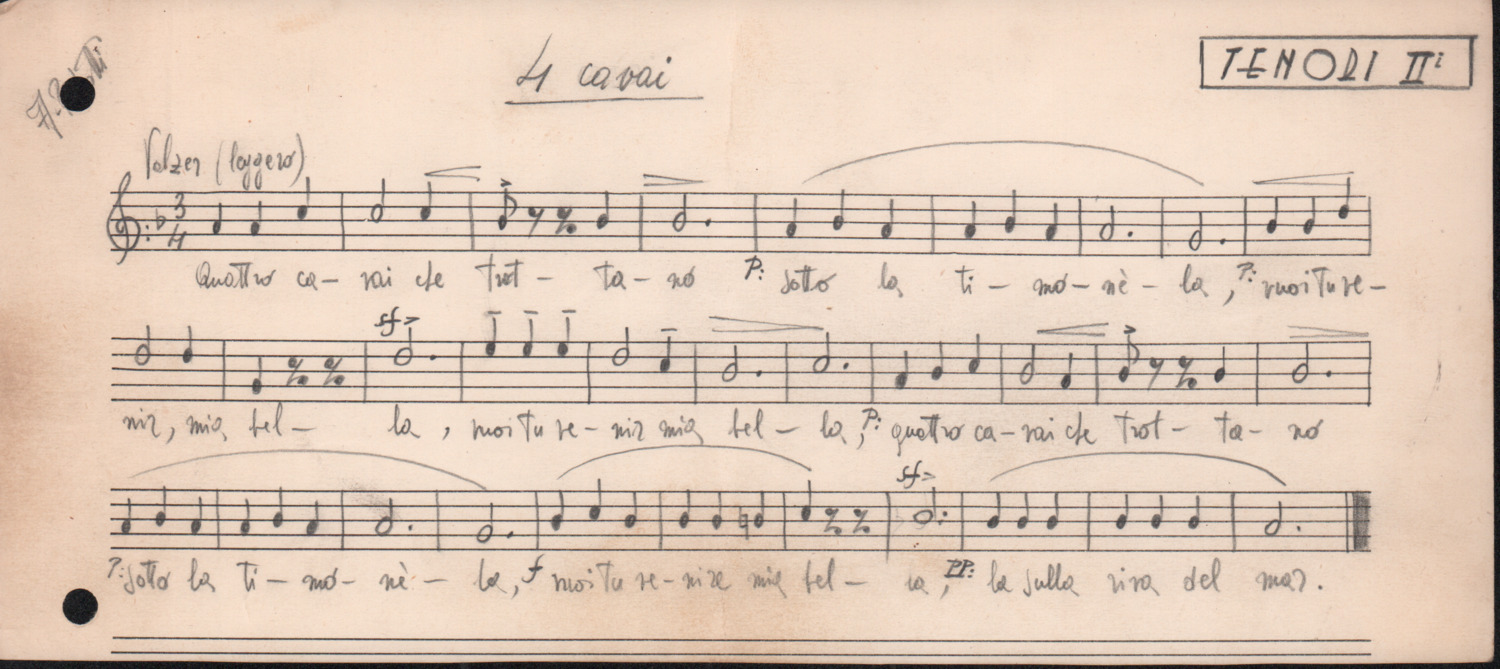 4 cavai
TENORI IIi
Valzer (leggero)
3
4
Quattro ca– vai che trot – ta – no P: sotto la ti – mo – nè – la, P: vuoi tu ve –
sf>
nir, mia bel – la, vuoi tu ve – nir mia bel – la, P: quattro ca – vai che trot – ta – no
sf>
P: sotto la ti – mo – nè – la, f vuoi tu ve – nire mia bel – la, PP: la sulla riva del mar.